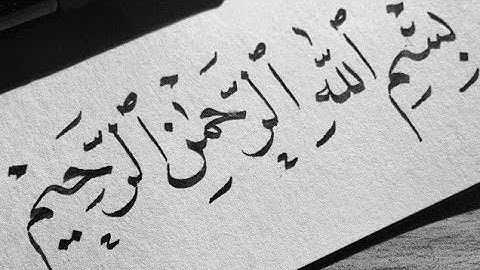 بِسْمِ ٱللَّهِ ٱلرَّحْمَٰنِ ٱلرَّحِيمِ